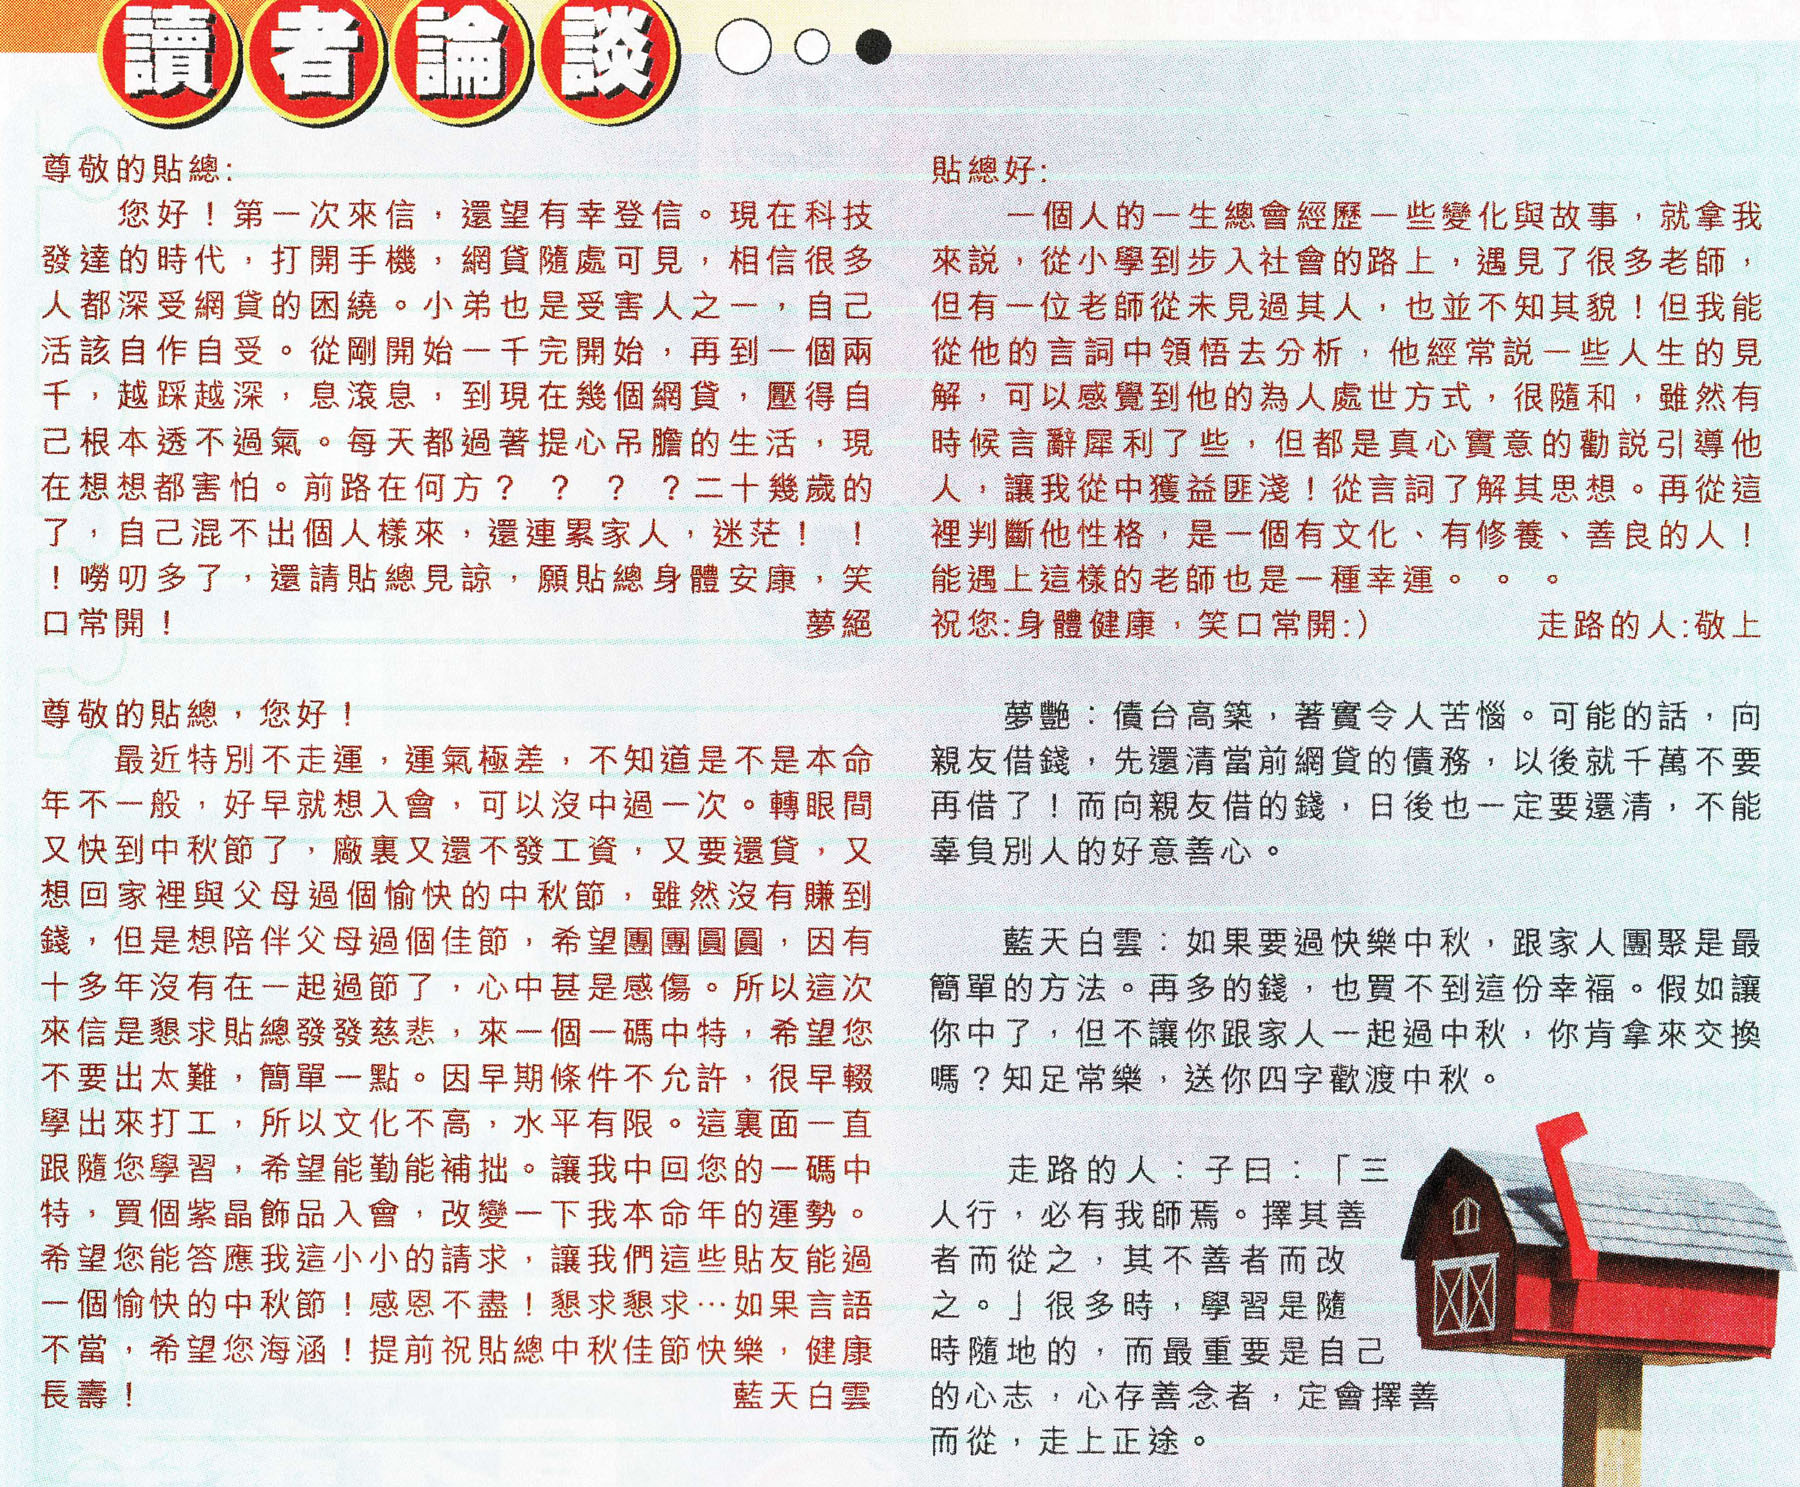 讀者論談
尊敬的貼總:
您好！第一次來信，還望有幸登信。現在科技
發達的時代，打開手機，網貸隨處可見，相信很多
人都深受網貸的困繞。小弟也是受害人之一，自己
活該自作自受。從剛開始一千完開始，再到一個兩
千，越踩越深，息滾息，到現在幾個網貸，壓得自
己根本透不過氣。每天都過著提心吊膽的生活，現
在想想都害怕。前路在何方？？？？二十幾歲的
了，自己混不出個人樣來，還連累家人，迷茫！！
！嘮叨多了，還請貼總見諒，願貼總身體安康，笑
口常開！ 夢絕
尊敬的貼總，您好！
最近特別不走運，運氣極差，不知道是不是本命
年不一般，好早就想入會，可以沒中過一次。轉眼間
又快到中秋節了，廠裏又還不發工資，又要還貸，又
想回家裡與父母過個愉快的中秋節，雖然沒有賺到
錢，但是想陪伴父母過個佳節，希望團團圓圓，因有
十多年沒有在一起過節了，心中甚是感傷。所以這次
來信是懇求貼總發發慈悲，來一個一碼中特，希望您
不要出太難，簡單一點。因早期條件不允許，很早輟
學出來打工，所以文化不高，水平有限。這裏面一直
跟隨您學習，希望能勤能補拙。讓我中回您的一碼中
特，買個紫晶飾品入會，改變一下我本命年的運勢。
希望您能答應我這小小的請求，讓我們這些貼友能過
一個愉快的中秋節！感恩不盡！懇求懇求…如果言語
不當，希望您海涵！提前祝貼總中秋佳節快樂，健康
長壽！ 藍天白雲
貼總好:
一個人的一生總會經歷一些變化與故事，就拿我
來説，從小學到步入社會的路上，遇見了很多老師，
但有一位老師從未見過其人，也並不知其貌！但我能
從他的言詞中領悟去分析，他經常説一些人生的見
解，可以感覺到他的為人處世方式，很隨和，雖然有
時候言辭犀利了些，但都是真心實意的勸説引導他
人，讓我從中獲益匪淺！從言詞了解其思想。再從這
裡判斷他性格，是一個有文化、有修養、善良的人！
能遇上這樣的老師也是一種幸運。。。
祝您:身體健康，笑口常開:） 走路的人:敬上
夢艷：債台高築，著實令人苦惱。可能的話，向
親友借錢，先還清當前網貸的債務，以後就千萬不要
再借了！而向親友借的錢，日後也一定要還清，不能
辜負別人的好意善心。
藍天白雲：如果要過快樂中秋，跟家人團聚是最
簡單的方法。再多的錢，也買不到這份幸福。假如讓
你中了，但不讓你跟家人一起過中秋，你肯拿來交換
嗎？知足常樂，送你四字歡渡中秋。
走路的人：子曰：「三
人行，必有我師焉。擇其善
者而從之，其不善者而改
之。」很多時，學習是隨
時隨地的，而最重要是自己
的心志，心存善念者，定會擇善
而從，走上正途。